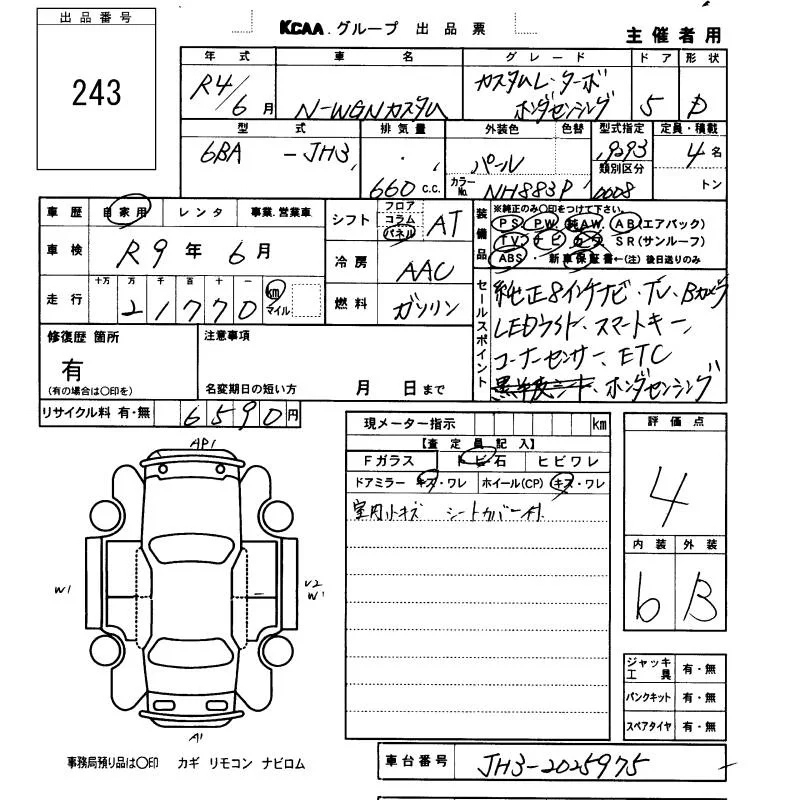 出品番号
243
KCAA.グループ 出品票
主催者用
年式 車名 グレード ドア 形状
R4/6月 N-WGNカスタム カスタムL・ターボ ホンダセンシング 5 D
型式 排気量 外装色 色替 型式指定 定員・積載
6BA -JH3 660 c.c. パール カラーNo. NH883P 19293 類別区分 0008 4名 トン
車歴 自家用 レンタ 事業.営業車
車検 R9年6月
走行 十万 万 千 百 十 一
21770 km マイル
シフト フロア コラム パネル AT
冷房 AAC
燃料 ガソリン
装備品
※純正のみ○印をつけて下さい。
PS PW 純AW. AB(エアバック)
TV ナビ カワ SR(サンルーフ)
ABS 新車保証書←(注) 後日送りのみ
セールスポイント
純正8インチナビ・TV、Bカメラ
LEDライト、スマートキー、
コーナーセンサー、ETC
黒半皮シート、ホンダセンシング
修復歴 箇所
有
(有の場合は○印を)
注意事項
名変期日の短い方 月 日まで
リサイクル料 有・無 6590円
現メーター指示 km
【査定員記入】
Fガラス トビ石 ヒビワレ
ドアミラー キズ・ワレ ホイール(CP) キズ・ワレ
室内小キズ シートカバー付.
評価点
4
内装 外装
b B
ジャッキ工具 有・無
パンクキット 有・無
スペアタイヤ 有・無
AP1
W1
U2
W1
A1
事務局預り品は○印 カギ リモコン ナビロム
車台番号 JH3-2025975